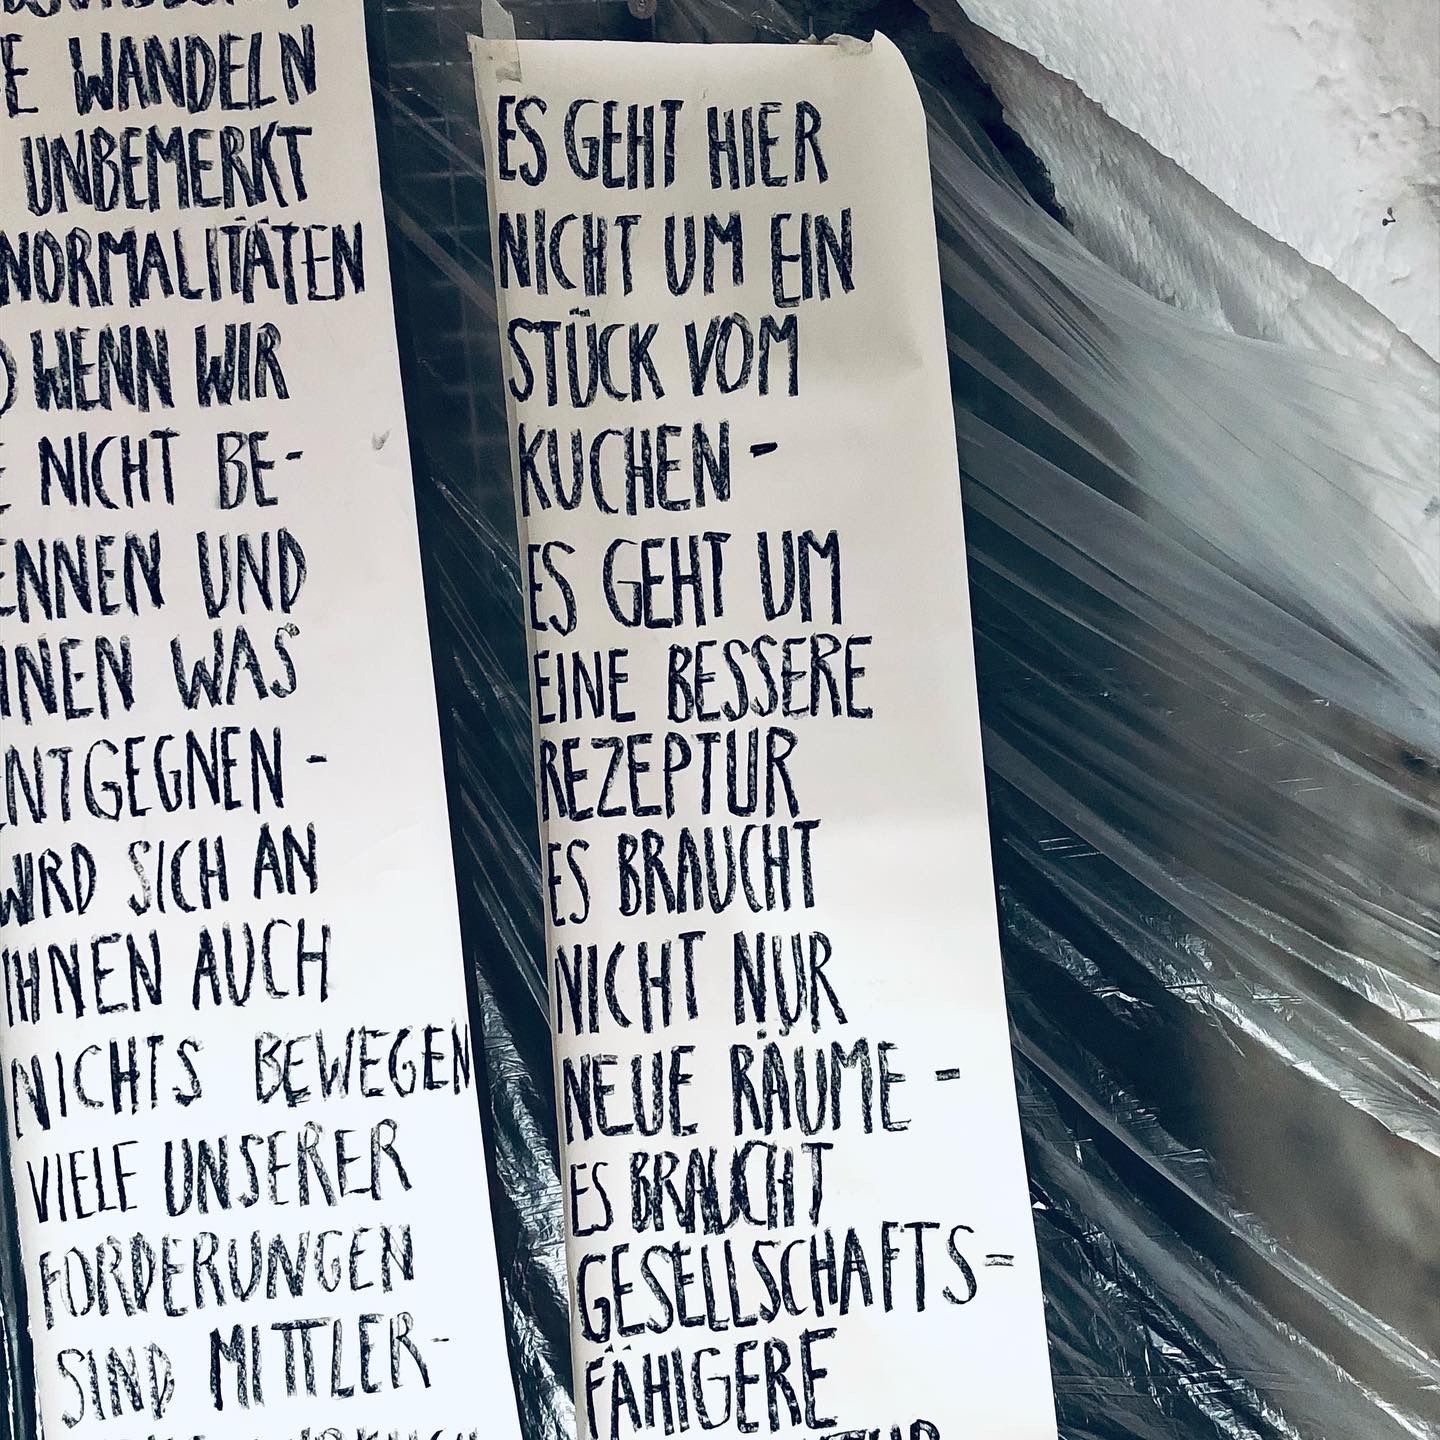 WANDELN
UNBEMERKT
NORMALITÄTEN
WENN WIR
NICHT BE-
ENNEN UND
WAS
ENTGEGNEN -
WIRD SICH AN
IHNEN AUCH
NICHTS BEWEGEN
VIELE UNSERER
FORDERUNGEN
SIND MITTLER-
ES GEHT HIER
NICHT UM EIN
STÜCK VOM
KUCHEN -
ES GEHT UM
EINE BESSERE
REZEPTUR
ES BRAUCHT
NICHT NUR
NEUE RÄUME -
ES BRAUCHT
GESELLSCHAFTS=
FÄHIGERE